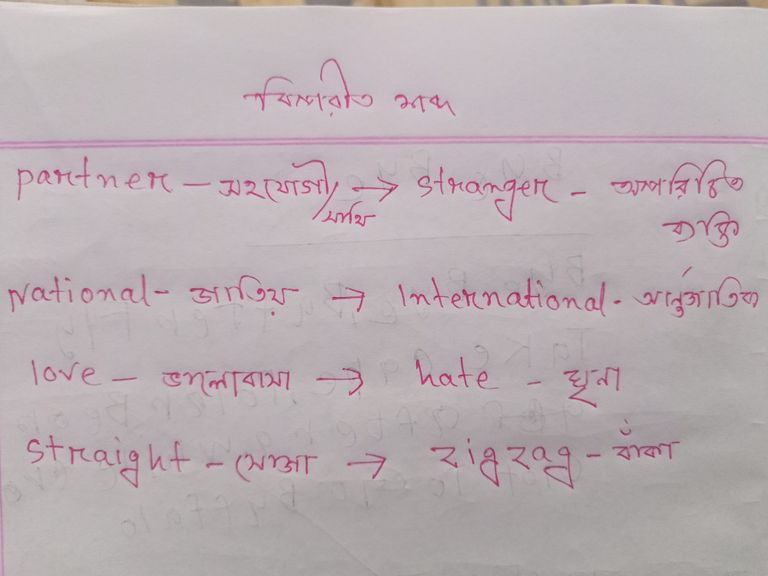 বিপরীত শব্দ
partner - সহযোগী/সাথি → stranger - অপরিচিত ব্যক্তি
National - জাতিয় → International - আর্ন্তুজাতিক
love - ভালোবাসা → hate - ঘৃনা
straight - সোজা → zigzag - বাঁকা